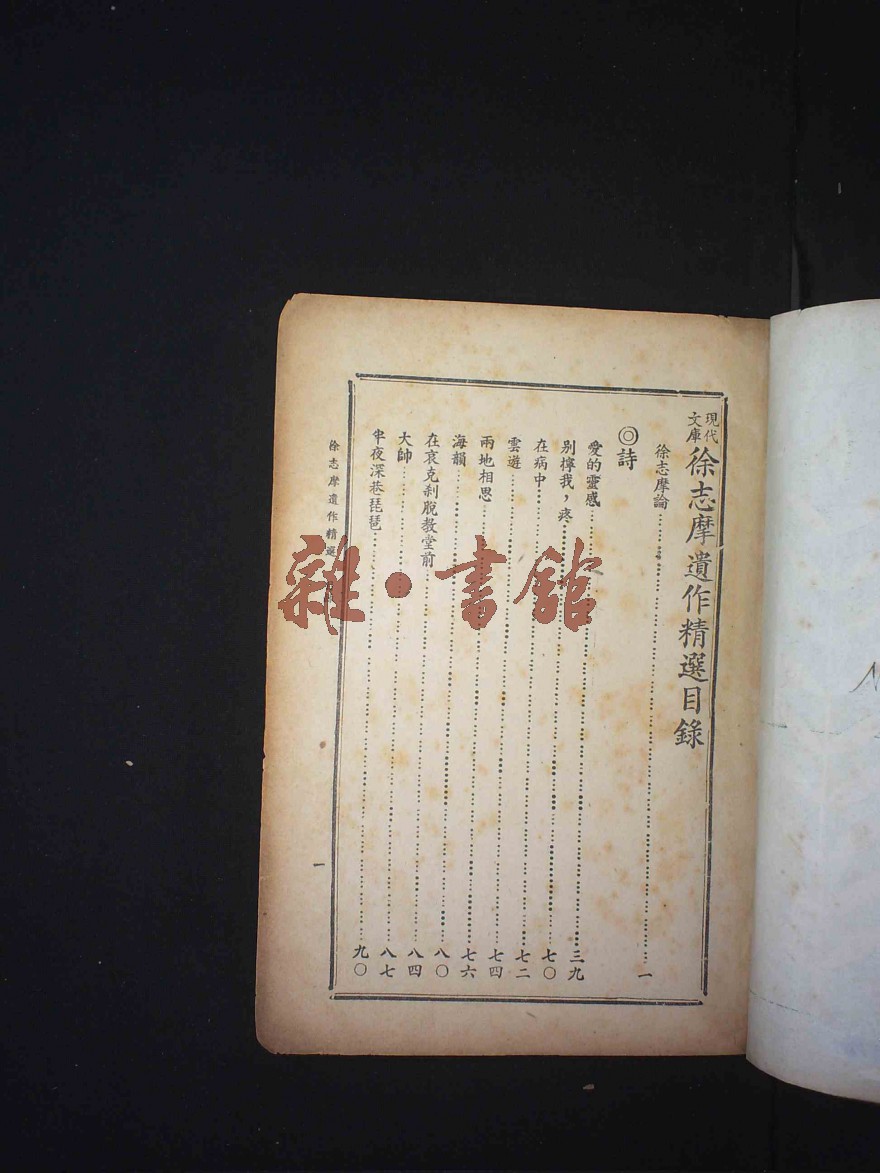 現代文庫 徐志摩遺作精選目錄
徐志摩論……一
◎詩
愛的靈感……三九
別擰我，疼……七〇
在病中……七二
雲遊……七四
兩地相思……七六
海韻……八〇
在哀克刹脫教堂前……八四
大帥……八七
半夜深巷琵琶……九〇
徐志摩遺作精選
一
雜·書館